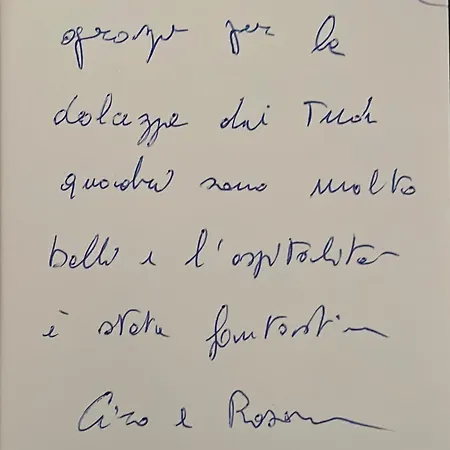 grazie per la
dolcezza dei Tuoi
quadri sono molto
belli e l'ospitalità
è stata fantastica
Ciro e Rosa